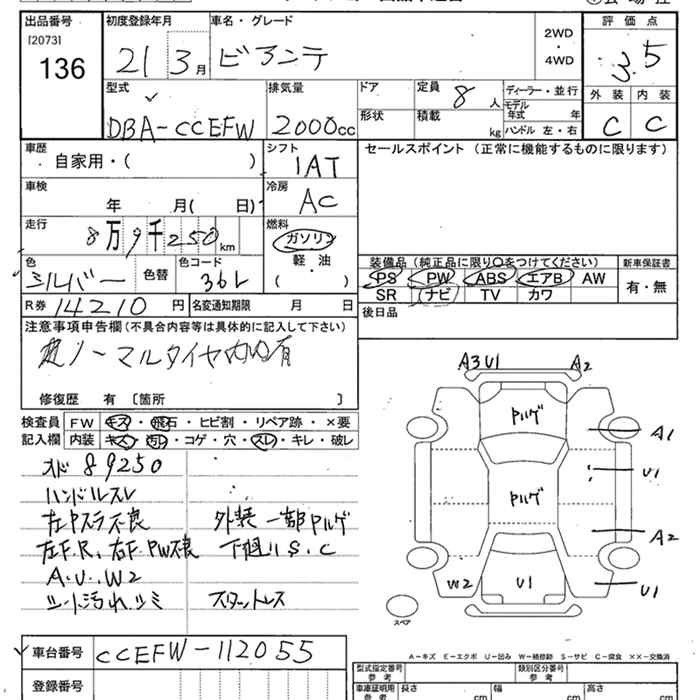 出品番号
[2073]
136
初度登録年月
21 3月
車名・グレード
ビアンテ
2WD
・
4WD
評価点
3.5
外装 内装
C C
型式
DBA-CCEFW
排気量
2000cc
ドア
形状
定員
8人
積載
kg
ディーラー・並行
モデル
年式 年
ハンドル 左・右
車歴
自家用・( )
シフト
IAT
セールスポイント (正常に機能するものに限ります)
車検
年 月( 日)
冷房
AC
走行
8万9千250km
燃料
ガソリン
軽・油
( )
色
シルバー
色替
色コード
36L
装備品 (純正品に限り○をつけてください)
PS PW ABS エアB AW
SR ナビ TV カワ
新車保証書
有・無
R券 14210 円
名変通知期限 月 日
後日品
注意事項申告欄 (不具合内容等は具体的に記入して下さい)
ノーマルタイヤ
有
修復歴 有 〔箇所 〕
検査員
記入欄
FW キズ・飛石・ヒビ割・リペア跡・×要
内装 キズ・汚れ・コゲ・穴・スレ・キレ・破レ
89250
ハンドルスレ
左Pスラ不良
外装一部Pルゲ
左F.R、右F PW不良
下廻りS.C
A.U.W2
シート汚れシミ
スタットレス
A3 U1
A2
Pルゲ
A1
U1
Pルゲ
A2
W2
U1
U1
スペア
A-キズ E-エクボ U-凹み W-補修跡 S-サビ C-腐食 ××-交換済
車台番号
CCEFW-112055
登録番号
型式指定番号
参考
類別区分番号
参考
車庫証明用
参考
長さ cm
幅 cm
高さ cm